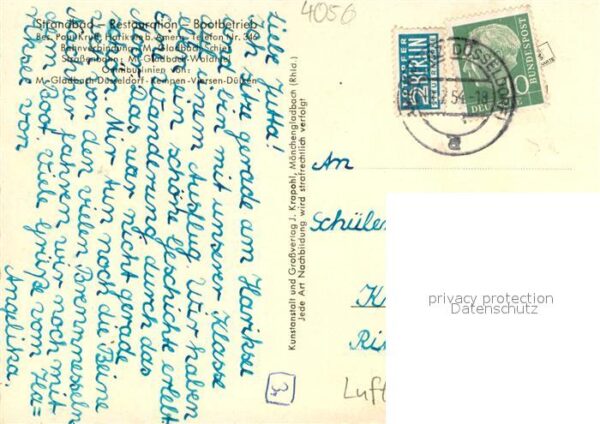 4056
Strandbad – Restauration – Bootbetrieb
Bes. Paul Kruß, Hariksee b. Amern, Telefon Nr. 346
Bahnverbindung: M.-Gladbach-Schier
Straßenbahn: M.-Gladbach-Waldniel
Omnibuslinien von:
M.-Gladbach-Düsseldorf-Kempen-Viersen-Dülken
Liebe Jutta!
Ich sitze gerade am Hariksee
und bin mit unserer Klasse
auf einem Ausflug. Wir haben
schon eine schöne Geschichte erlebt.
Eine Wanderung durch das
Moor. Das war nicht gerade
schön. Mir tun noch die Beine
weh von den vielen Brennnesseln.
Nachher fahren wir noch mit
dem Boot. Viele Grüße vom Ha=
riksee von
Angelika
Kunstanstalt und Großverlag J. Krapohl, Mönchengladbach (Rhld.)
Jede Art Nachbildung wird strafrechtlich verfolgt
NOTOPFER
2 BERLIN
STEUERMARKE
DÜSSELDORF
54
a
DEUTSCHE BUNDESPOST
An
Schüler
K
Ri
Luft
privacy protection
Datenschutz